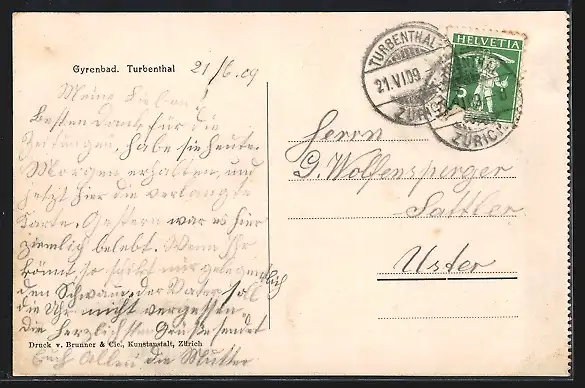 Gyrenbad. Turbenthal
21/6.09
Meine Lieben!
Besten Dank für die
Zeitungen, habe sie heute
Morgen erhalten, und
jetzt hier die verlangte
Karte. Gestern war es hier
ziemlich belebt. Wenn ihr
könnt, so schikt mir gelegentlich
den Schwamm, der Vater soll
die Uhr nicht vergessen
die herzlichsten Grüße sendet
Euch Allen die Mutter
Druck v. Brunner & Cie, Kunstanstalt, Zürich
TURBENTHAL
21.VI.09
ZÜRICH
HELVETIA
5
ZÜRICH
Herrn
G. Wolfensperger
Sattler
Uster